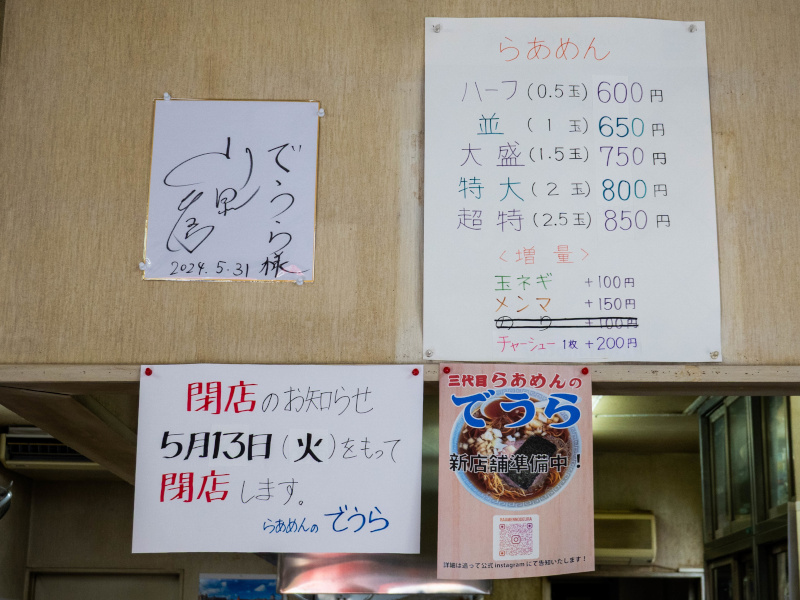 でうら様
2024.5.31
らあめん
ハーフ(0.5玉) 600円
並 (1玉) 650円
大盛(1.5玉) 750円
特大(2玉) 800円
超特(2.5玉) 850円
〈増量〉
玉ネギ +100円
メンマ +150円
のり +100円
チャーシュー 1枚 +200円
閉店のお知らせ
5月13日(火)をもって
閉店します。
らあめんの でうら
三代目らあめんの
でうら
新店舗準備中!
RAAMENNODEURA
詳細は追って公式instagramにて告知いたします!